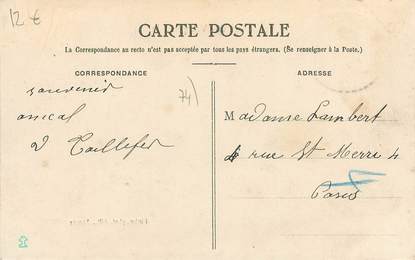 12 €
CARTE POSTALE
La Correspondance au recto n'est pas acceptée par tous les pays étrangers. (Se renseigner à la Poste.)
CORRESPONDANCE
ADRESSE
souvenir
amical
Taillefer
74)
Madame Lambert
4 rue St Merri 4
Paris